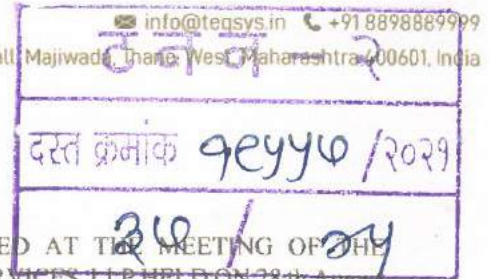 info@teqsys.in +91 8898889999
all, Majiwada, Thane West, Maharashtra 400601, India
ट न न - २
दस्त क्रमांक १९५५७ /२०२१
३७ /
ED AT THE MEETING OF THE
SERVICES LLP HELD ON 28th